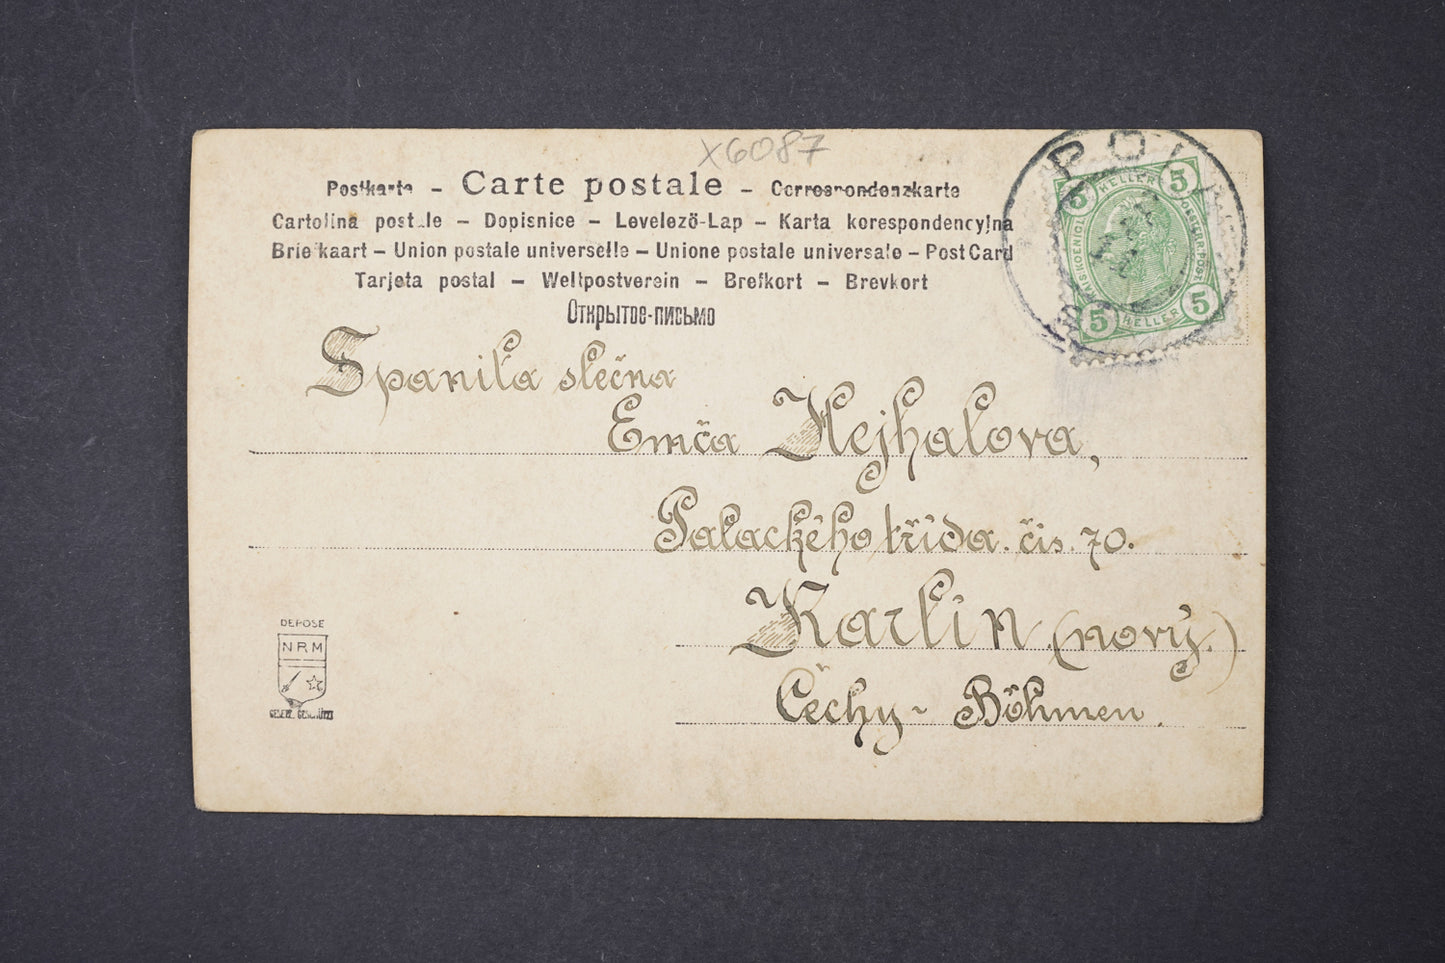 X6087
Postkarte – Carte postale – Correspondenzkarte
Cartolina postale – Dopisnice – Levelező-Lap – Karta korespondencyjna
Briefkaart – Union postale universelle – Unione postale universale – Post Card
Tarjeta postal – Weltpostverein – Brefkort – Brevkort
Открытое-письмо
5 HELLER 5
5 HELLER 5
Spanilá slečna
Emča Nejhalova,
Palackého třída. čis. 70.
Karlín (nový.)
Čechy - Böhmen.
DEPOSE
NRM
GESETZ. GESCHÜTZT